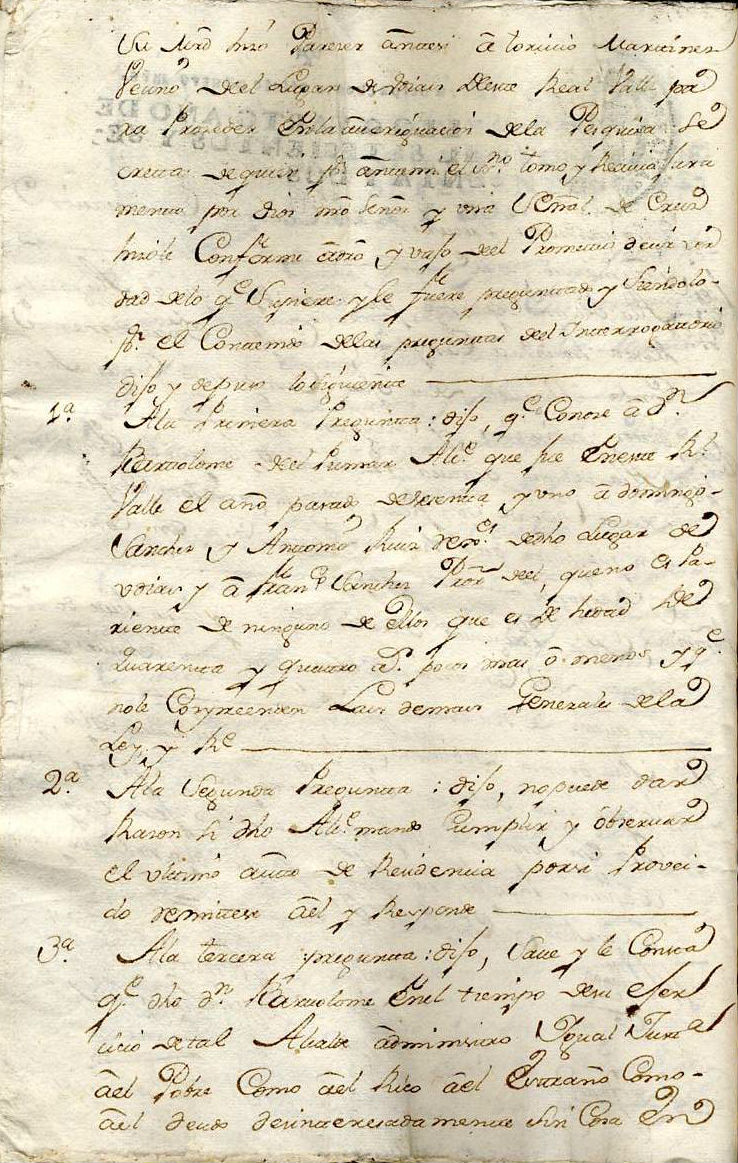 Su Mrd hizo Parecer ante si a Martinez
Vecino deel Lugar de este Real Valle pa
ra Proceder en la averiguacion de la Pesquisa Se
creta de quien pr antemi el sno tomo y Recivio Jura
mento por Dios nro Señor y una Señal de Cruz
hizole Conforme a dro y vajo del Prometio decir ver
dad delo qe Supiere y le fuere preguntado y Siendolo
pr el Contenido delas preguntas del Interrogatorio
dijo y depuso lo siguiente
1a. Ala Primera Pregunta: dijo, qe Conoce a Dn
Bartolome del Pumar Alce que fue en este Rl
Valle el año pasado de setenta y uno a domingo
Sanchez y Antonio Ruiz vezos de dho Lugar de
y a Franco Sanchez Pror del, que no es Pa-
riente de ninguno de ellos que es de hedad de
quarenta y quatro as pocos mas o menos y qe
nole Comprenden Las demas Generales de la
Ley y Re
2a. Ala Segunda Pregunta: dijo, no puede dar
Razon si dho Alce mando Cumplir y observar
el ultimo auto de Residencia por si Provei-
do remitese a el y Responde
3a. Ala tercera pregunta: dijo, Save y le Consta
qe dho Dn Bartolome en el tiempo de su ejer
cicio de tal Alcalde administro Igual Justa
a el Pobre Como a el Rico a el Estraño Como-
a el deudo desinteresadamente sin Cosa En